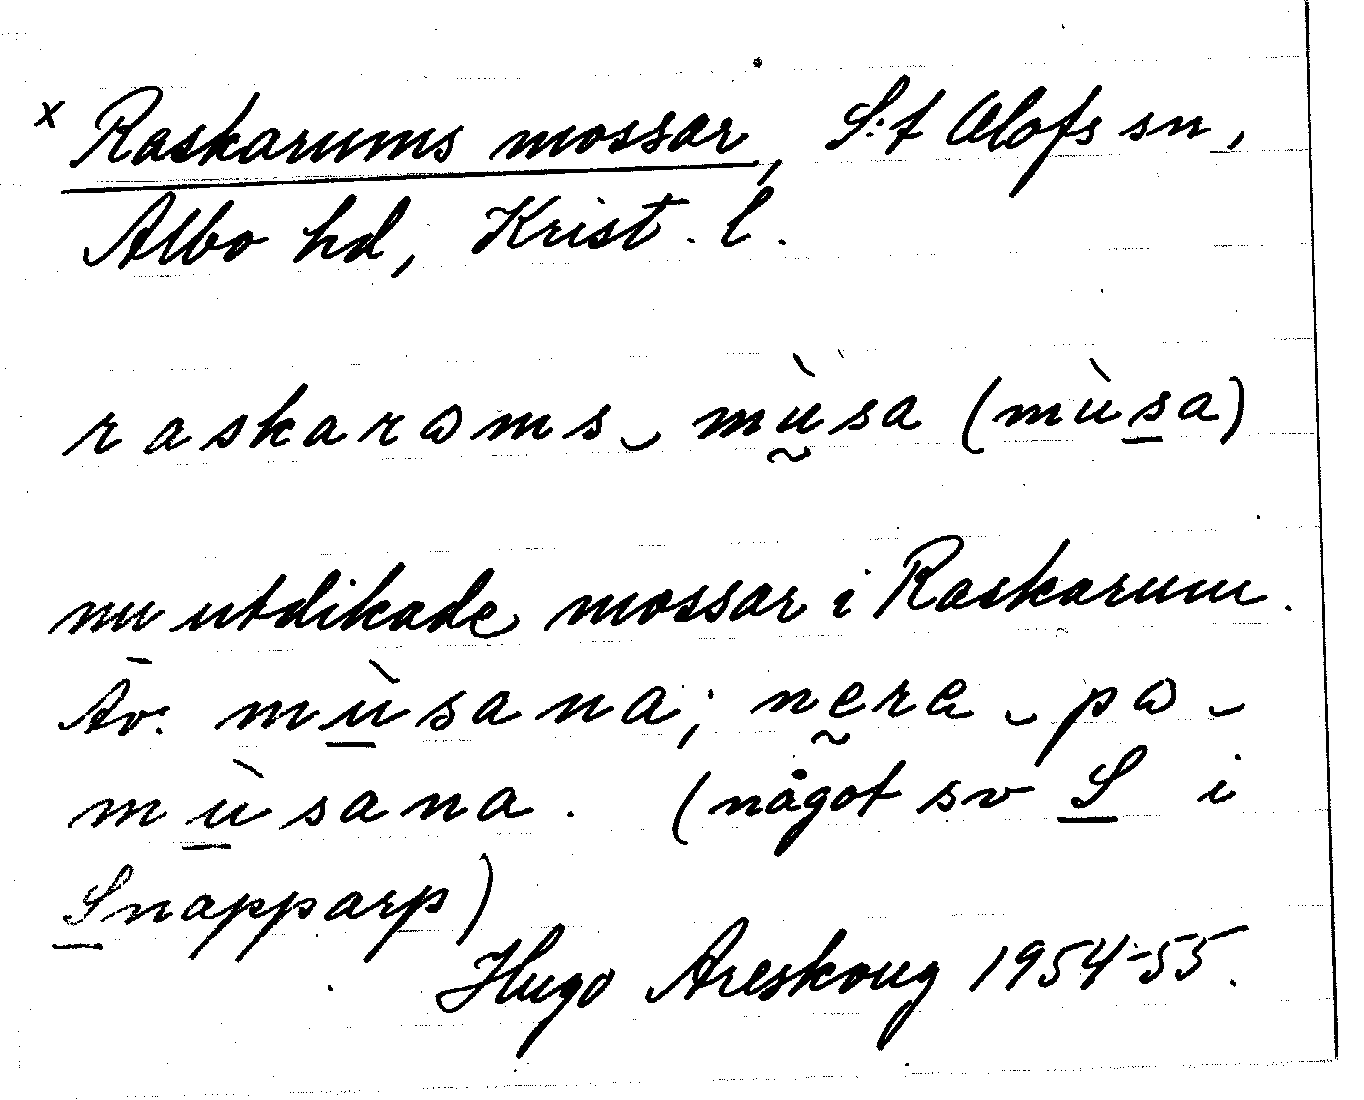 x Raskarums mossar, S:t Olofs sn,
Albo hd, Krist. l.
raskaroms‿mṵ̀sa (mùs̲a)
nu utdikade mossar i Raskarum.
Äv. mù̲sana; nḛra‿pɷ‿
mù̲sana. (något sv S̲ i
S̲napparp)
Hugo Areskoug 1954-55.